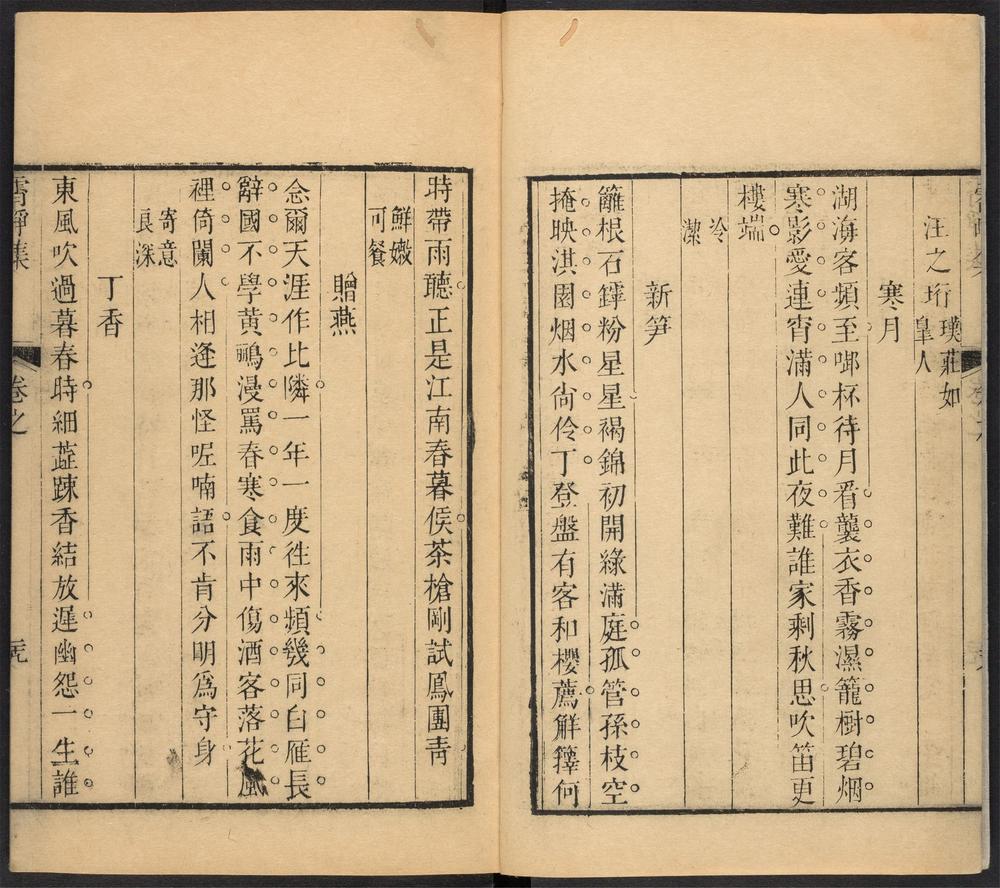 汪之珩
璞莊如
皐人
寒月
湖海客頻至啣杯待月看襲衣香霧濕籠樹碧烟
寒影愛連宵滿人同此夜難誰家剩秋思吹笛更
樓端
冷
潔
新笋
籬根石罅粉星星褐錦初開綠滿庭孤管孫枝空
掩映淇園烟水尙伶丁登盤有客和櫻薦解籜何
時帶雨聽正是江南春暮候茶槍剛試鳳團靑
鮮嫩
可餐
贈燕
念爾天涯作比隣一年一度徃來頻幾同白雁長
辭國不學黃鸝漫罵春寒食雨中傷酒客落花風
裡倚闌人相逢那怪呢喃語不肯分明爲守身
寄意
良深
丁香
東風吹過暮春時細蕋踈香結放遲幽怨一生誰
卷之